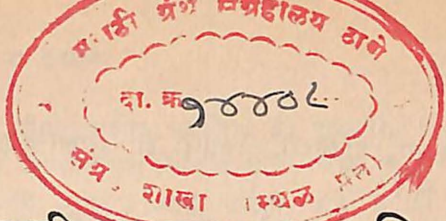 मराठी ग्रंथ संग्रहालय ठाणे
दा. क्र. १४४०८
संग्र. शाखा (स्थळ प्रत)